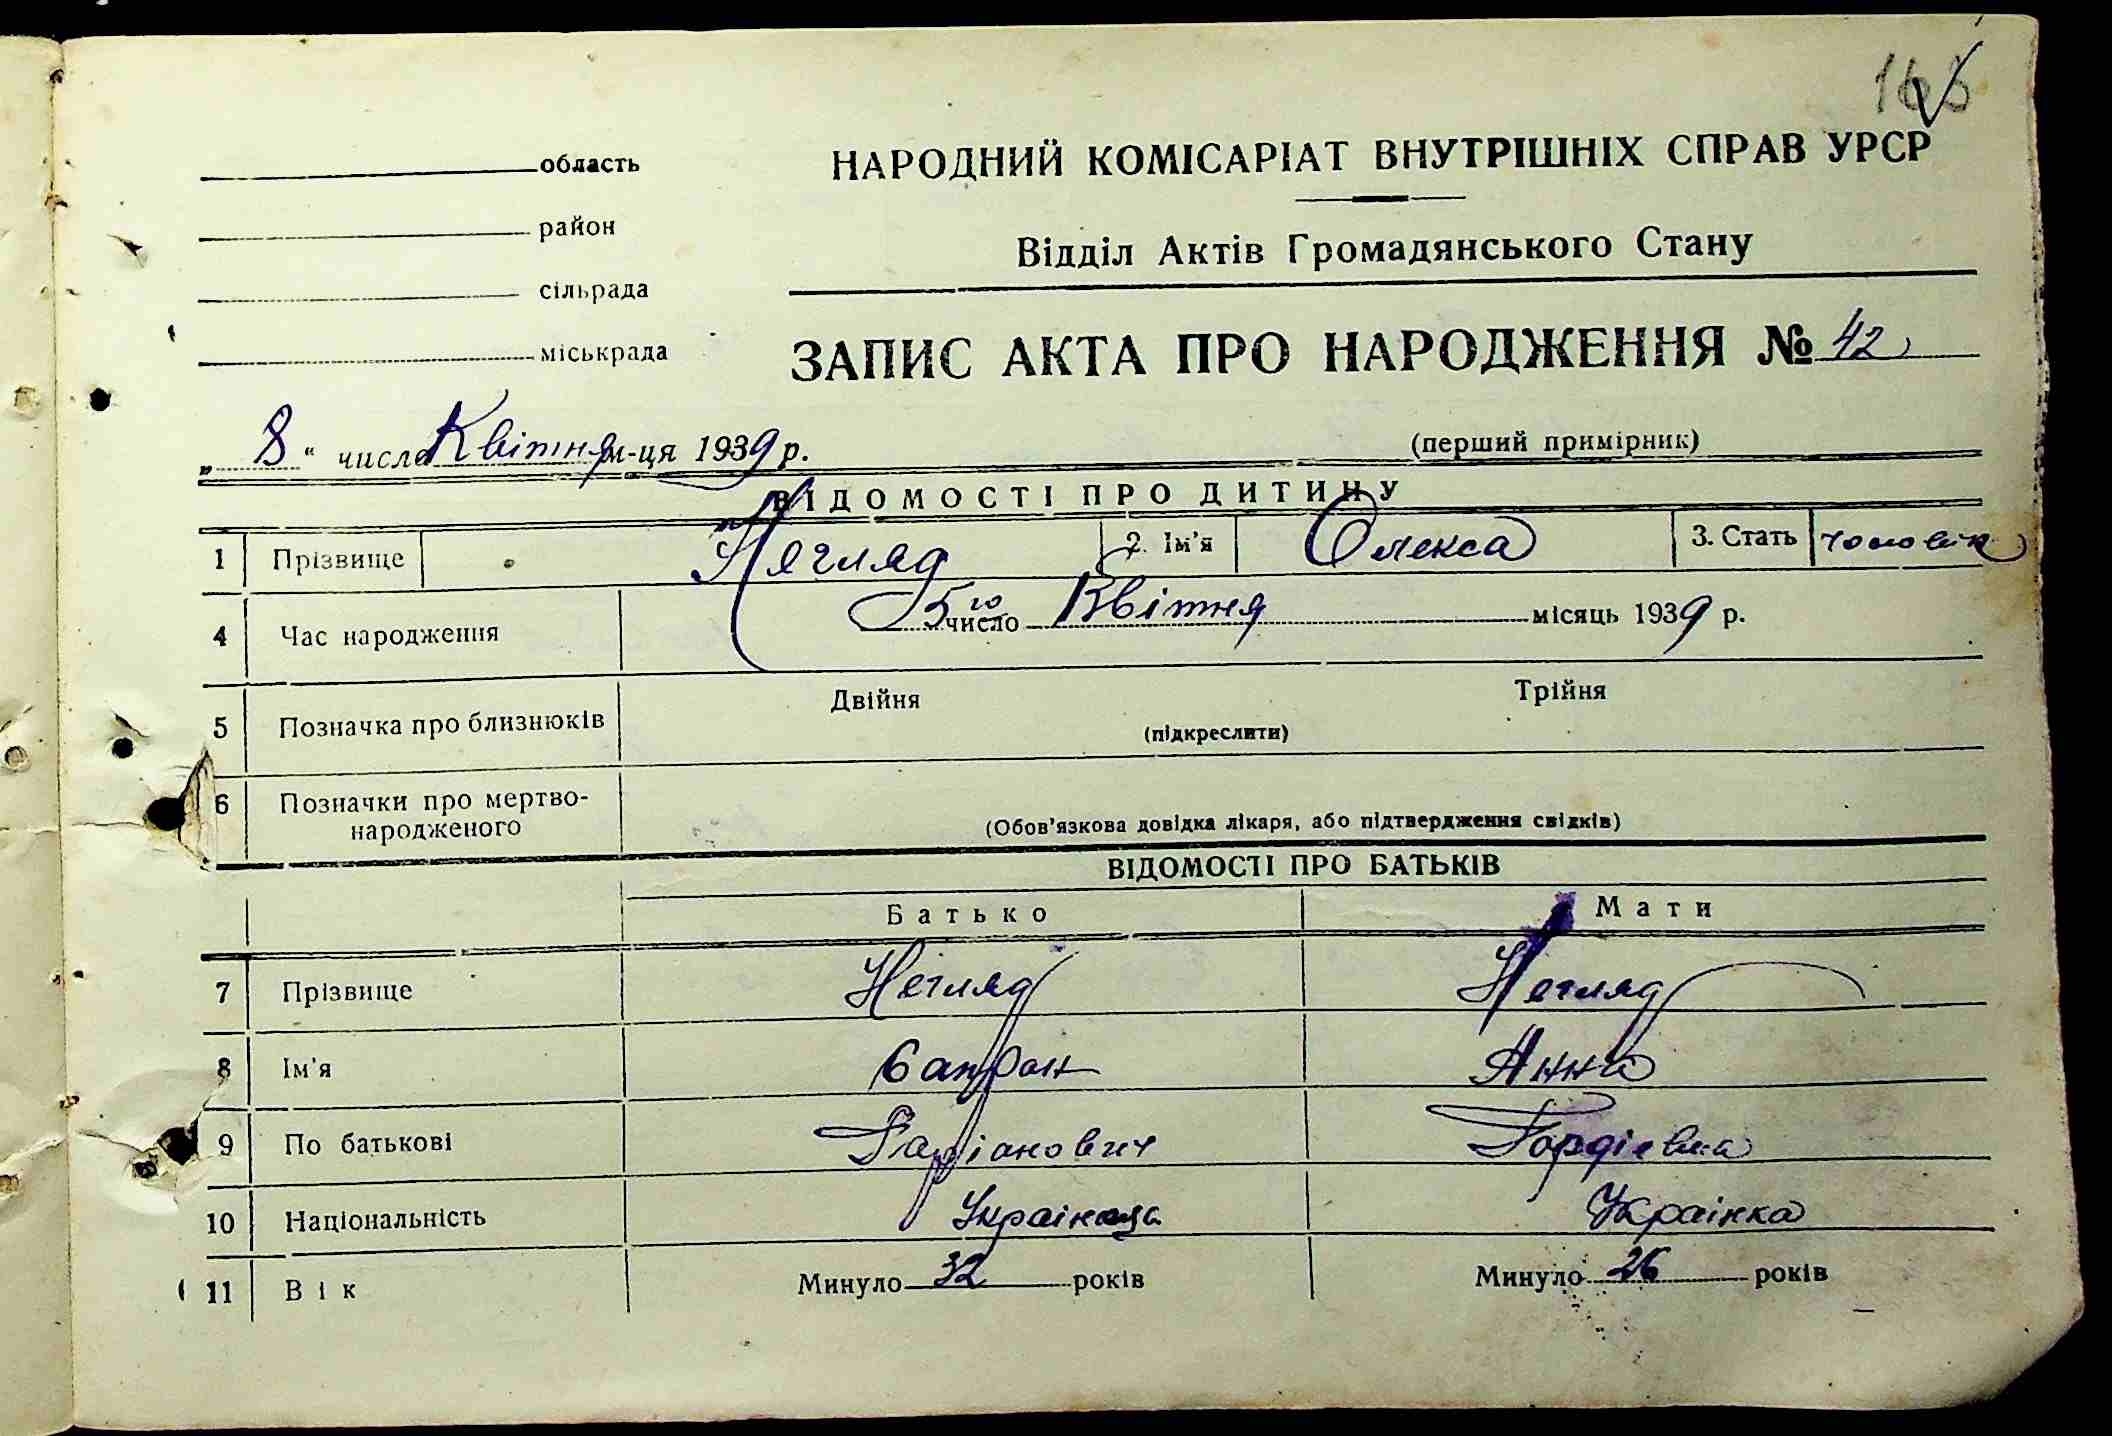 область
НАРОДНИЙ КОМІСАРІАТ ВНУТРІШНІХ СПРАВ УРСР
район
Відділ Актів Громадянського Стану
сільрада
міськрада
ЗАПИС АКТА ПРО НАРОДЖЕННЯ № 42
„ 8 “ число Квітня м-ця 1939 р.
(перший примірник)
ВІДОМОСТІ ПРО ДИТИНУ
1 Прізвище Негляд 2. Ім'я Олекса 3. Стать чоловік
4 Час народження 5го число Квітня місяць 1939 р.
5 Позначка про близнюків Двійня Трійня
(підкреслити)
6 Позначки про мертво-
народженого
(Обов'язкова довідка лікаря, або підтвердження свідків)
ВІДОМОСТІ ПРО БАТЬКІВ
Батько Мати
7 Прізвище Негляд Негляд
8 Ім'я Анна
9 По батькові Гордіевна
10 Національність Украінка
11 Вік Минуло 32 років Минуло 26 років